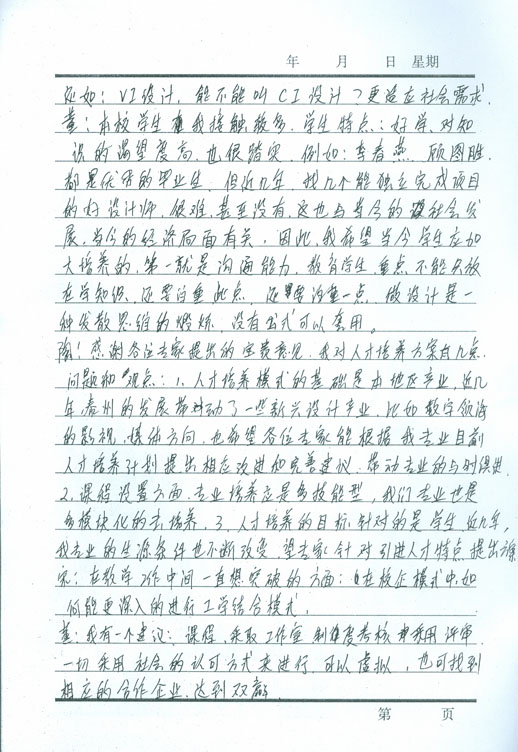 年 月 日 星期
例如：VI设计，能不能叫CI设计？更适应社会需求。
黄：本校学生我接触较多，学生特点：好学、对知
识的渴望度高，也很踏实，例如：李春燕、顾图胜，
都是优秀的毕业生，但近几年，找几个能独立完成项目
的好设计师，很难，甚至没有，这也与当今的社会发
展，当今的经济局面有关，因此，我希望当今学生应加
大培养的，第一就是沟通能力，教育学生，重点不能只放
在学知识，还要注重此点，还要注重一点，做设计是一
种发散思维的锻炼，没有公式可以套用。
陶：感谢各位专家提出的宝贵意见，我对人才培养方案有几点
问题和观点：1、人才培养模式的基础是本地区产业，近几
年，泰州的发展带动了一些新兴设计产业，比如数字领域
的影视、媒体方向，也希望各位专家能根据我专业目前
人才培养计划提出相应改进和完善建议，带动专业的与时俱进。
2、课程设置方面，专业培养应是多技能型，我们专业也是
多模块化的去培养，3、人才培养的目标，针对的是学生，近几年，
我专业的生源条件也不断改变，望专家针对引进人才特点，提出方案
宋：在教学工作中间一直想突破的方面：①在校企模式中，如
何能更深入的进行工学结合模式，
黄：我有一个建议：课程，采取工作室制度考核，采用评审，
一切采用社会的认可方式来进行，可以虚拟，也可找到
相应的合作企业，达到双赢。
第 页